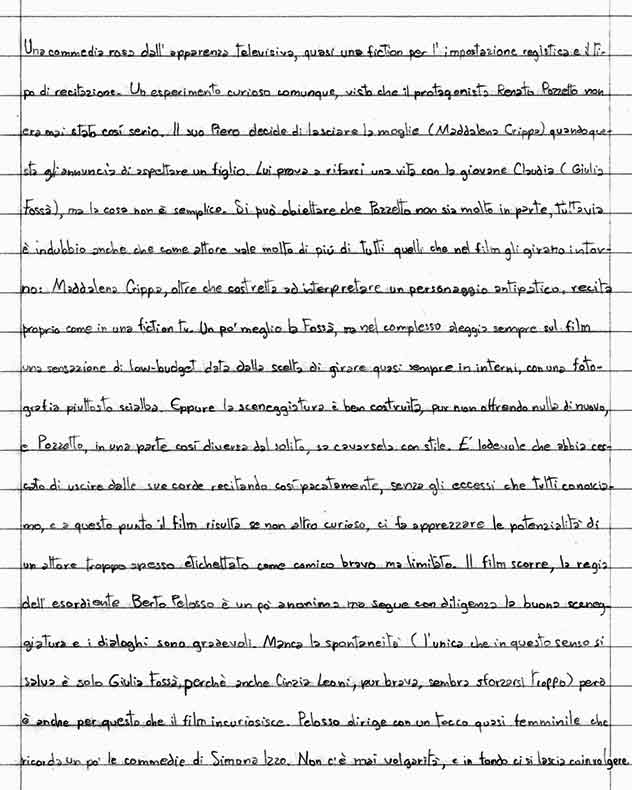 Una commedia rosa dall'apparenza televisiva, quasi una fiction per l'impostazione registica e il ti-
po di recitazione. Un esperimento curioso comunque, visto che il protagonista Renato Pozzetto non
era mai stato così serio. Il suo Piero decide di lasciare la moglie (Maddalena Crippa) quando que-
sta gli annuncia di aspettare un figlio. Lui prova a rifarci una vita con la giovane Claudia (Giulia
Fossà), ma la cosa non è semplice. Si può obiettare che Pozzetto non sia molto in parte, tuttavia
è indubbio anche che come attore vale molto di più di tutti quelli che nel film gli girano intor-
no: Maddalena Crippa, oltre che costretta ad interpretare un personaggio antipatico, recita
proprio come in una fiction tv. Un po' meglio la Fossà, ma nel complesso aleggia sempre sul film
una sensazione di low-budget data dalla scelta di girare quasi sempre in interni, con una foto-
grafia piuttosto scialba. Eppure la sceneggiatura è ben costruita, pur non offrendo nulla di nuovo,
e Pozzetto, in una parte così diversa dal solito, sa cavarsela con stile. E' lodevole che abbia cer-
cato di uscire dalle sue corde recitando così pacatamente, senza gli eccessi che tutti conoscia-
mo, e a questo punto il film risulta se non altro curioso, ci fa apprezzare le potenzialità di
un attore troppo spesso etichettato come comico bravo ma limitato. Il film scorre, la regia
dell'esordiente Berto Pelosso è un po' anonima ma segue con diligenza la buona sceneg-
giatura e i dialoghi sono gradevoli. Manca la spontaneità (l'unica che in questo senso si
salva è solo Giulia Fossà, perchè anche Cinzia Leoni, pur brava, sembra sforzarsi troppo) però
è anche per questo che il film incuriosisce. Pelosso dirige con un tocco quasi femminile che
ricorda un po' le commedie di Simona Izzo. Non c'è mai volgarità, e in fondo ci si lascia coinvolgere.